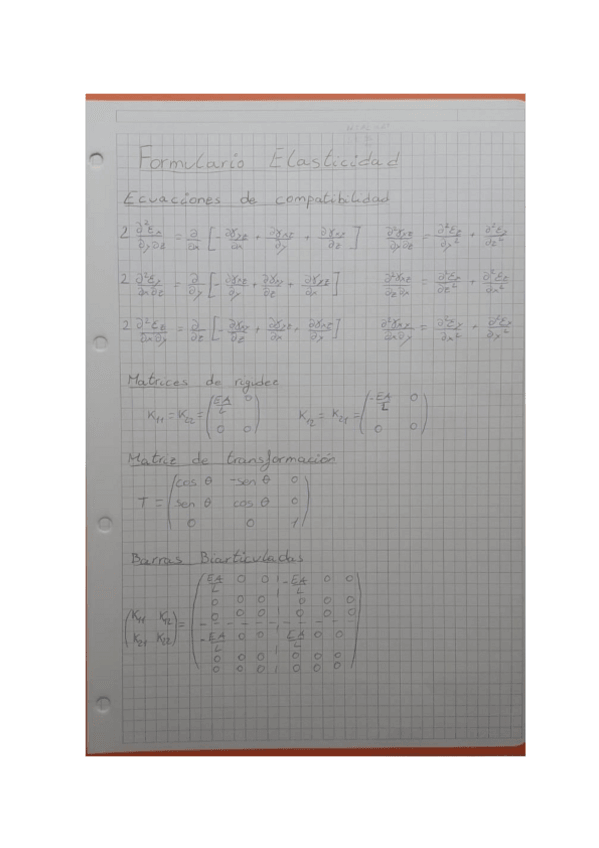 Formulario Elasticidad
Ecuaciones de compatibilidad
2 ∂²εx/∂y∂z = ∂/∂x [ - ∂γyz/∂x + ∂γxz/∂y + ∂γxy/∂z ] ∂²γyz/∂y∂z = ∂²εz/∂y² + ∂²εy/∂z²
2 ∂²εy/∂x∂z = ∂/∂y [ - ∂γxz/∂y + ∂γxy/∂z + ∂γyz/∂x ] ∂²γxz/∂z∂x = ∂²εx/∂z² + ∂²εz/∂x²
2 ∂²εz/∂x∂y = ∂/∂z [ - ∂γxy/∂z + ∂γyz/∂x + ∂γxz/∂y ] ∂²γxy/∂x∂y = ∂²εy/∂x² + ∂²εx/∂y²
Matrices de rigidez
K11 = K22 = ( EA/L 0 ; 0 0 ) K12 = K21 = ( -EA/L 0 ; 0 0 )
Matriz de transformación
cos θ -sen θ 0
T = sen θ cos θ 0
0 0 1
Barras Biarticuladas
EA/L 0 0 -EA/L 0 0
0 0 0 0 0 0
( K11 K12 ; K21 K22 ) = 0 0 0 0 0 0
-EA/L 0 0 EA/L 0 0
0 0 0 0 0 0
0 0 0 0 0 0